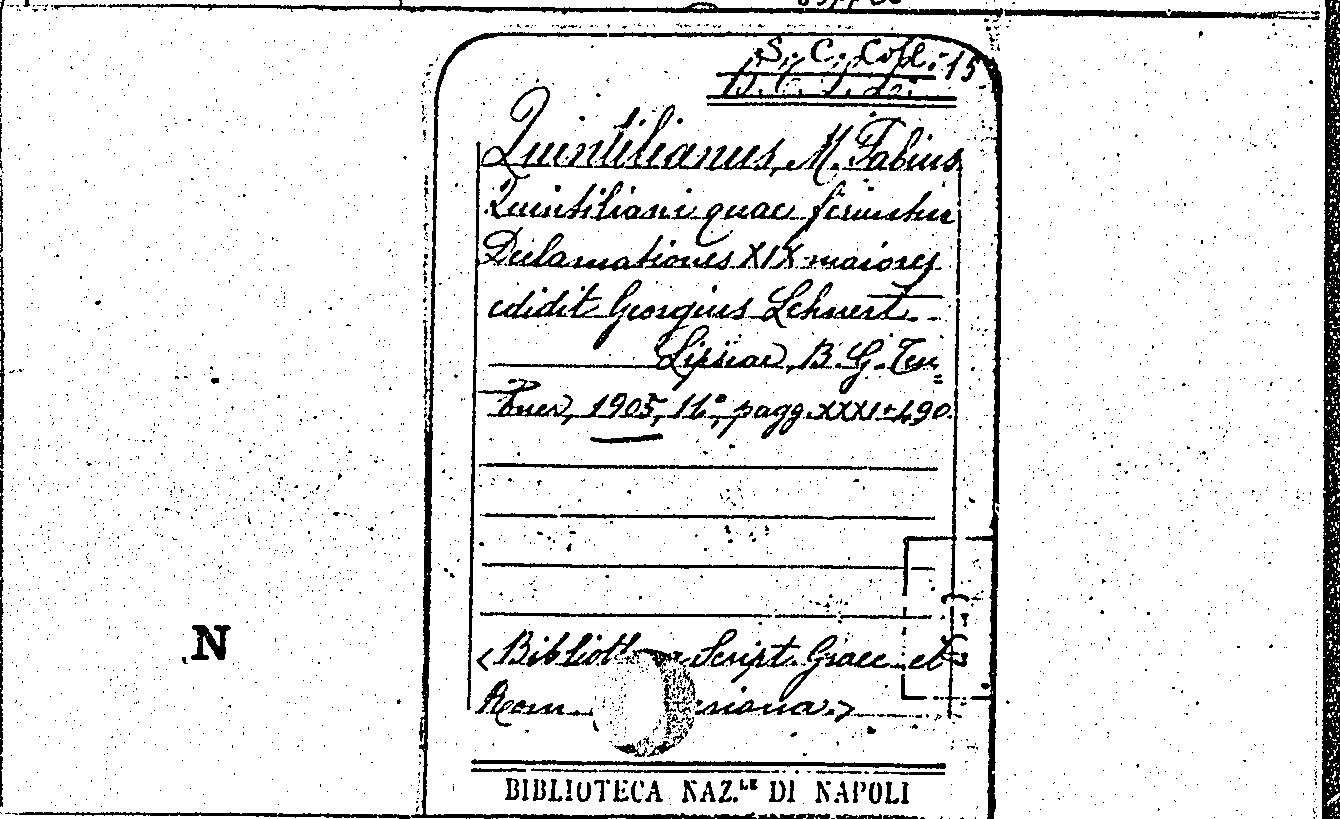 S. C. Coll. 15
Quintilianus, M. Fabius
Quintiliani quae feruntur
Declamationes XIX maiores
edidit Georgius Lehnert.
Lipsiae, B. G. Teu=
bner, 1905, 16°, pagg. XXXI+490.
N
Script. Graec. et
Rom.
BIBLIOTECA NAZ.LE DI NAPOLI